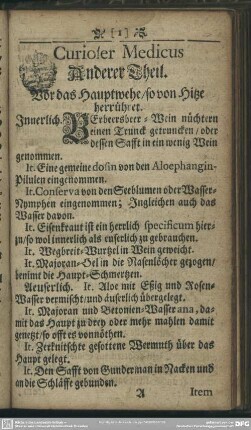 [1]
Curioser Medicus
Anderer Theil.
Vor das Hauptwehe / so von Hitze
herrühret.
Innerlich. BErbersbeer-Wein nüchtern
einen Trunck getruncken / oder
dessen Safft in ein wenig Wein
genommen.
It. Eine gemeine dosin von den Aloephangin-
Pilulen eingenommen.
It. Conserva von den Seeblumen oder Wasser-
Nymphen eingenommen; Ingleichen auch das
Wasser davon.
It. Eisenkraut ist ein herrlich specificum hier-
zu / so wol innerlich als euserlich zu gebrauchen.
It. Wegbreit-Wurtzel in Wein geweicht.
It. Majoran-Oel in die Nasenlöcher gezogen /
benimt die Haupt-Schmertzen.
Aeuserlich. It. Aloe mit Eßig und Rosen-
Wasser vermischt / und äuserlich übergelegt.
It. Majoran und Betonien-Wasser ana, da-
mit das Haupt zu drey oder mehr mahlen damit
genetzt / so offt es vonnöthen.
It. Zerknitscht gesottene Wermuth über das
Haupt gelegt.
It. Den Safft von Gunderman in Nacken und
an die Schläffe gebunden.
A Item